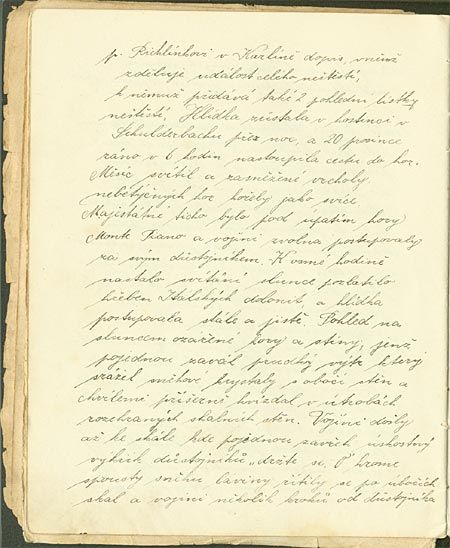 p. Richlínkovi v Karlíně dopis, v němž
zděluje událost celého neštěstí,
k němuž předává také 2 pohlední lístky
neštěstí. Hlídka zůstala v hostinci v
Schulderbachu přes noc, a 20 prosince
ráno v 6 hodin nastoupila cestu do hor.
Měsíc svítil a zasněžené vrcholy
nebetyčných hor hořely jako svíce
Majestátné ticho bylo pod úpatím hory
Monte Piano a vojíni zvolna postupovaly
za svým důstojníkem. K osmé hodině
nastalo svítání slunce pozlatilo
hřeben Italských dolomit, a hlídka
postupovala stále a jistě. Pohled na
sluncem ozářené hory a stěny, jenž
pojednou zavál prudký vítr který
srážel sněhové krystaly s obočí stěn a
chvílemi příšerně hvízdal v útrobách
rozebraných skalních stěn. Vojíni došly
až ke skále kde pojednou zavzněl úzkostný
výkřik důstojníků „držte se.
spousty sněhu laviny řítily se po úbočích
skal a vojíni několik kroků od důstojníka